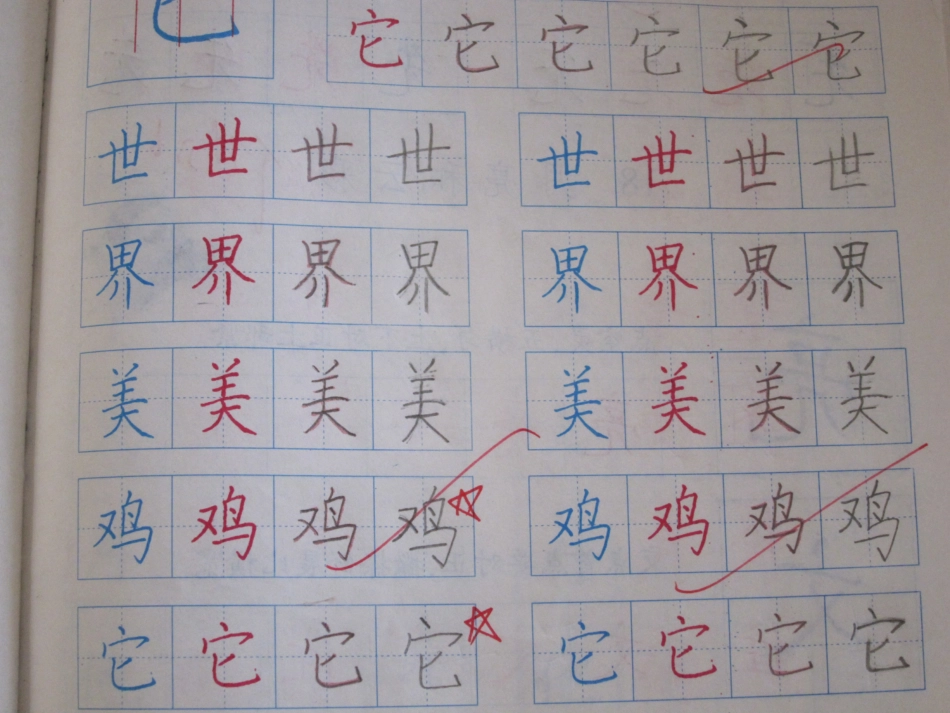 它 它 它 它 它 它 它
世 世 世 世 世 世 世 世
界 界 界 界 界 界 界 界
美 美 美 美 美 美 美 美
鸡 鸡 鸡 鸡 鸡 鸡 鸡 鸡
它 它 它 它 它 它 它 它